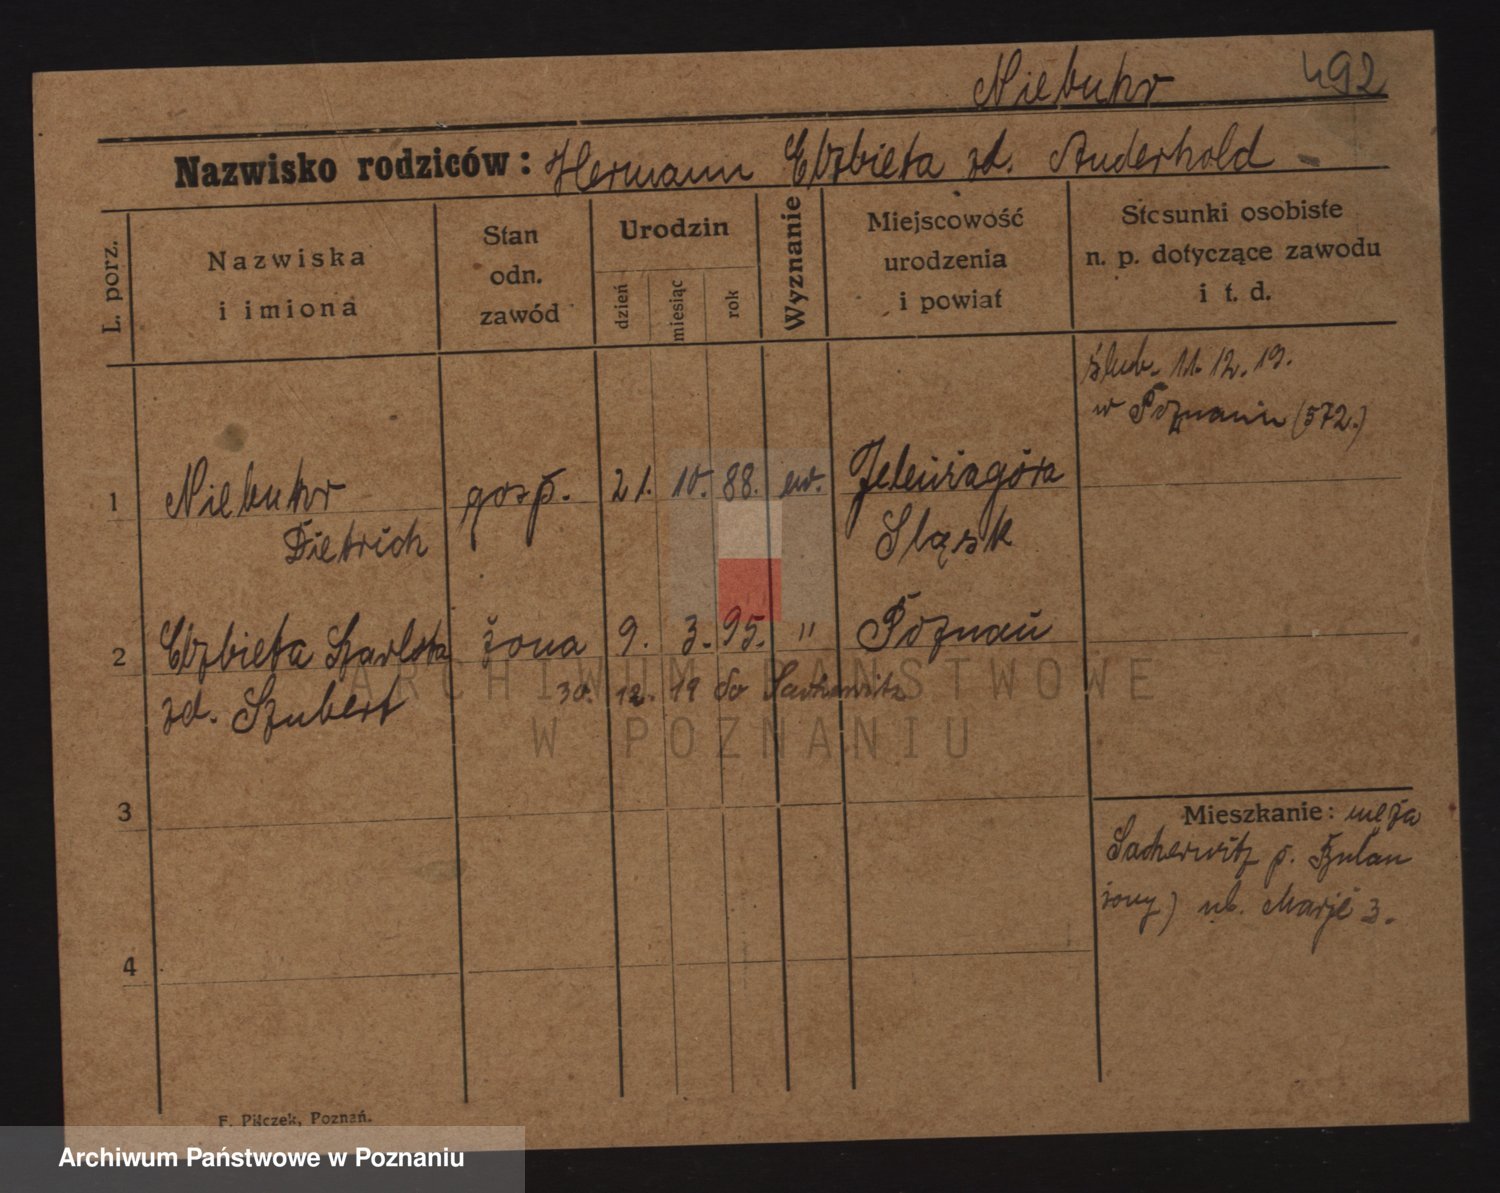 Niebuhr 492
Nazwisko rodziców: Hermann Elżbieta zd. Anderhold
L. porz.
Nazwiska
i imiona
Stan
odn.
zawód
Urodzin
dzień
miesiąc
rok
Wyznanie
Miejscowość
urodzenia
i powiat
Stosunki osobiste
n. p. dotyczące zawodu
i t. d.
ślub. 11. 12. 19.
w Poznaniu (572.)
1 Niebuhr gosp. 21. 10. 88. ew. Jeleniagóra
Dietrich Śląsk
2 Elżbieta Szarlota żona 9. 3. 95. " Poznań
zd. Szubert 30. 12. 19 do Sacherwitz
3
Mieszkanie: męża
Sacherwitz p.
żony) ul. Marji 3.
4
F. Pilczek, Poznań.
ARCHIWUM PAŃSTWOWE
W POZNANIU
Archiwum Państwowe w Poznaniu